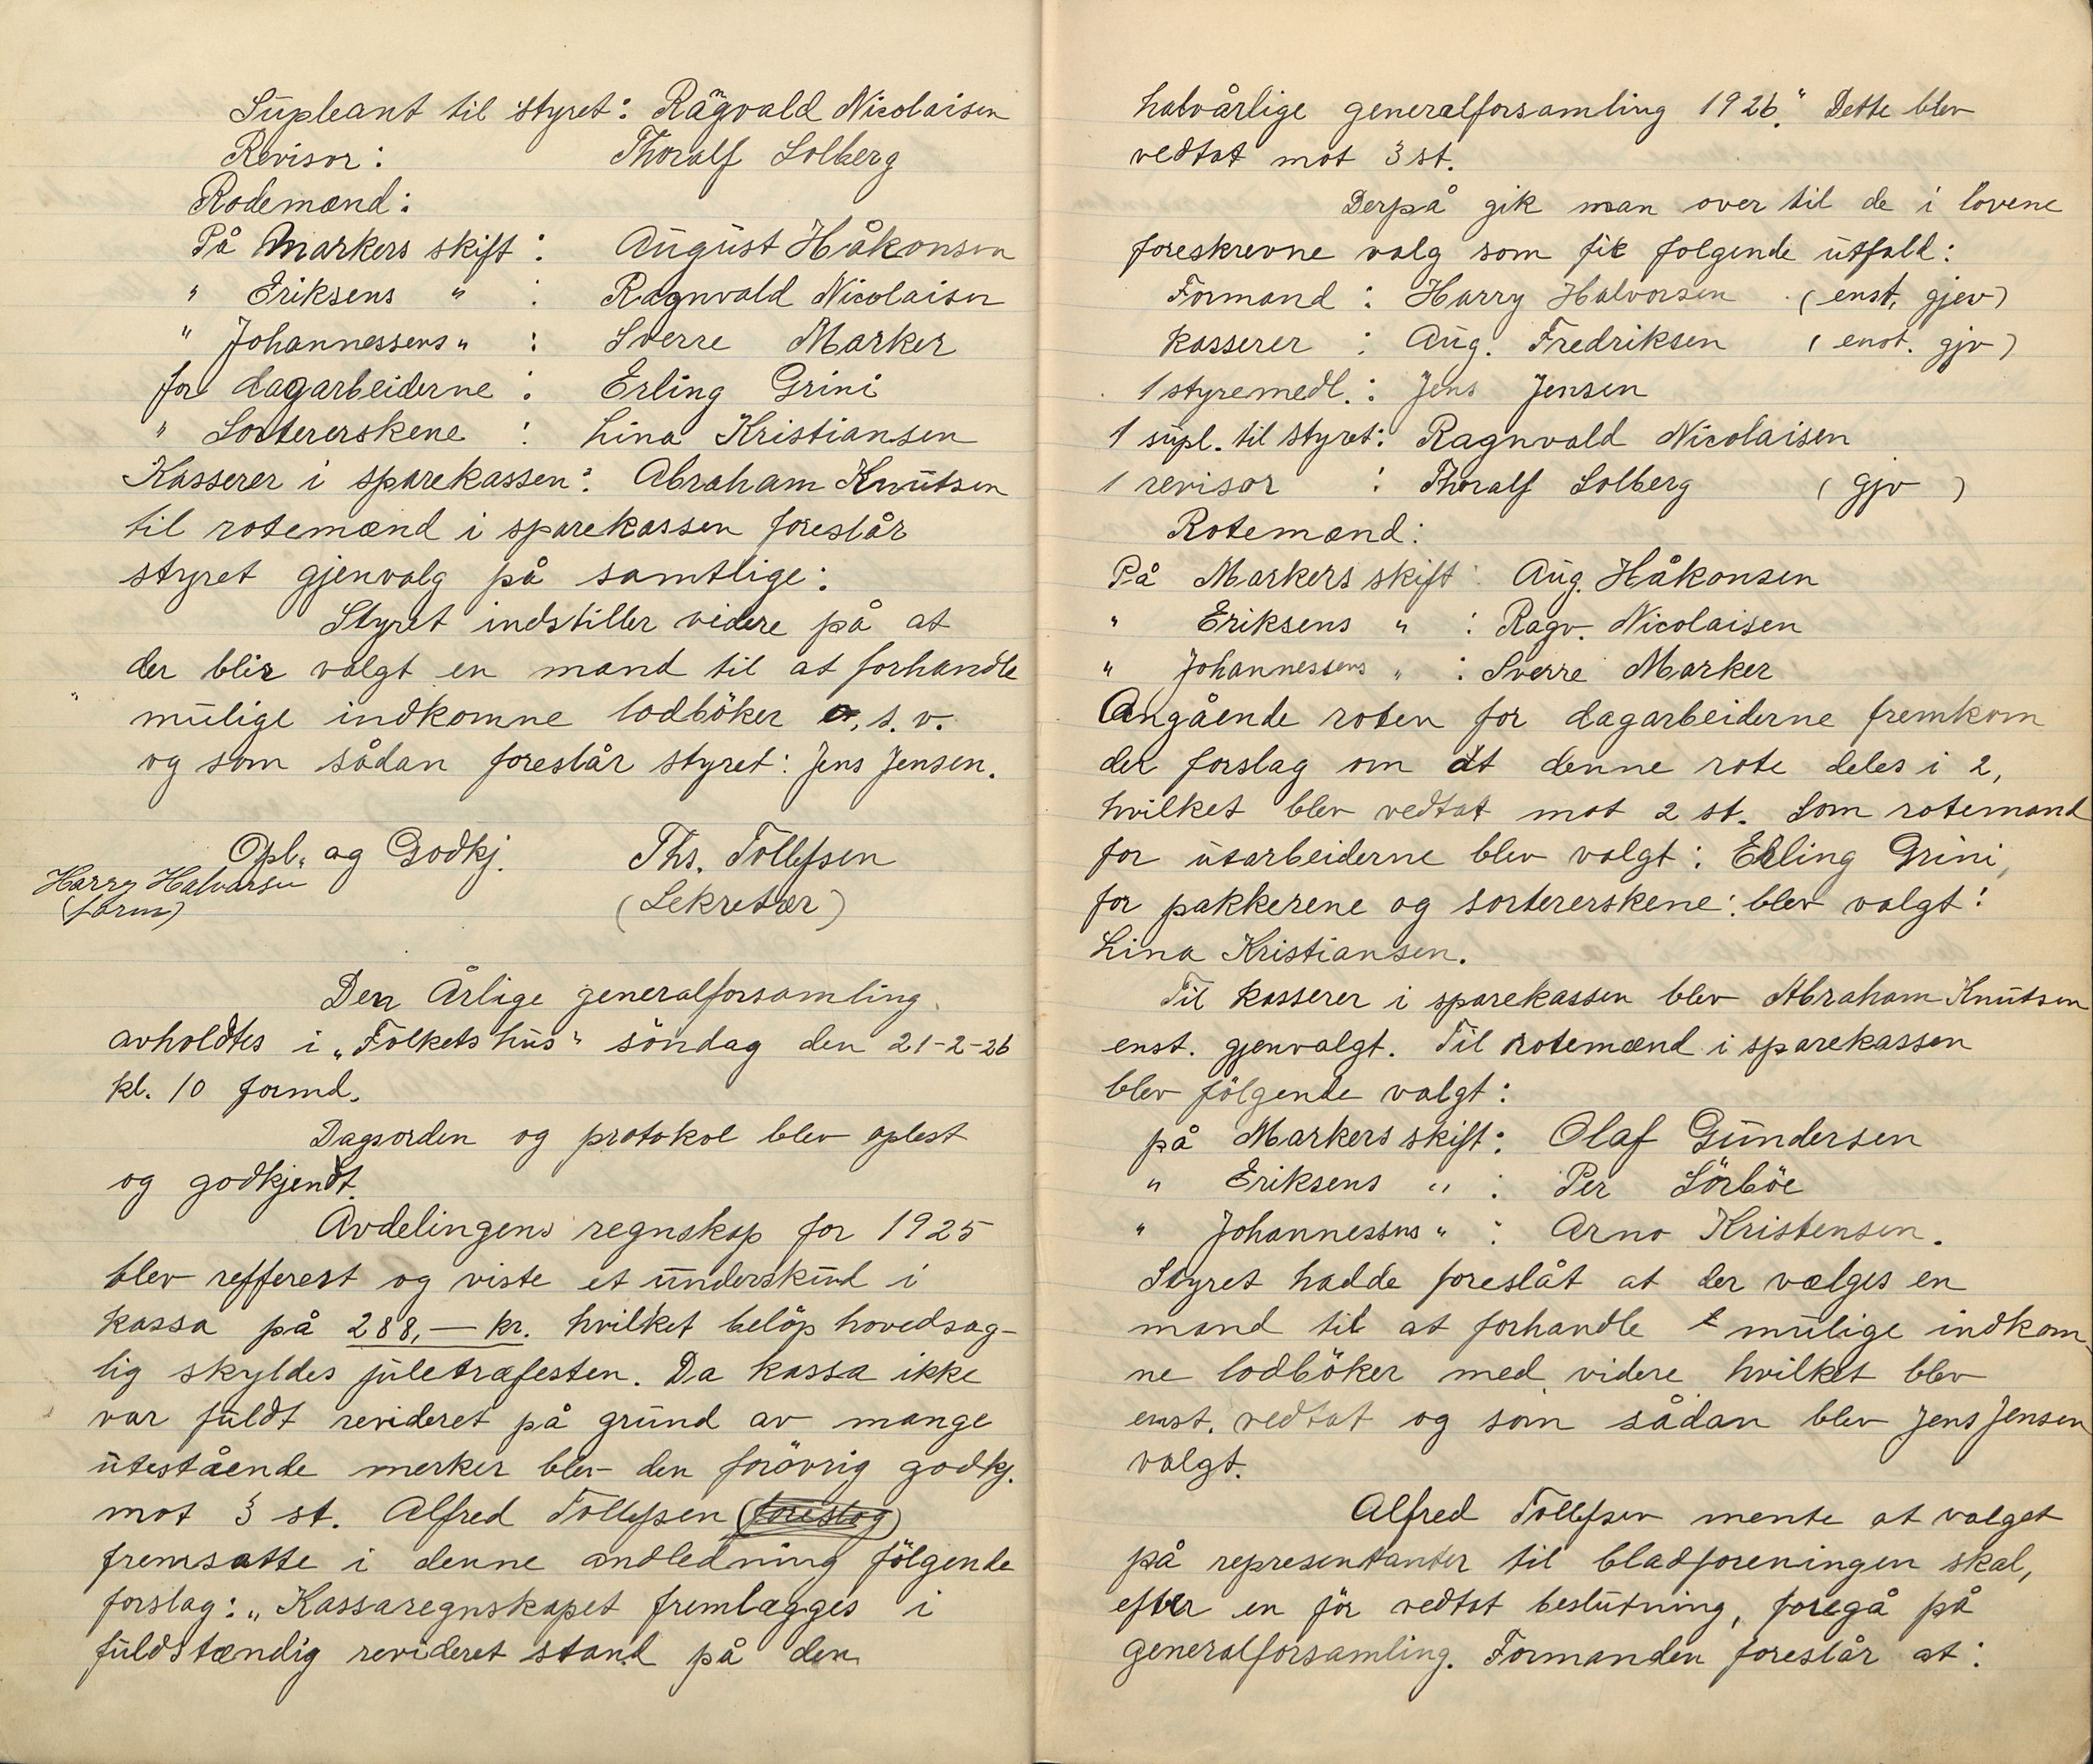 Supleant til styret: Ragnvald Nicolaisen
Revisor: Thoralf Solberg
Rodemænd:
På Markers skift: August Håkonsen
" Eriksens " : Ragnvald Nicolaisen
" Johannessens " : Sverre Marker
for dagarbeiderne: Erling Grini
" Sortererskene : Lina Kristiansen
Kasserer i sparekassen: Abraham Knutsen
til rotemænd i sparekassen foreslår
styret gjenvalg på samtlige:
Styret indstiller videre på at
der blir valgt en mand til at forhandle
mulige indkomne lodböker o. s. v.
og som sådan foreslår styret: Jens Jensen.
Opl. og Godkj. Ths. Tollefsen
Harry Halvorsen
(form) (Sekretær)
Den Årlige generalforsamling
avholdtes i „Folketshus" söndag den 21-2-26
kl. 10 formd.
Dagsorden og protokol blev oplest
og godkjendt.
Avdelingens regnskap for 1925
blev refferert og viste et underskud i
kassa på 288,— kr. hvilket belöp hovedsag-
lig skyldes juletræfesten. Da kassa ikke
var fuldt revideret på grund av mange
utestående merker blev den forövrig godkj.
mot 3 st. Alfred Tollefsen (foreslog)
fremsatte i denne andledning fölgende
forslag: „Kassaregnskapet fremlægges i
fuldstændig revideret stand på den
halvårlige generalforsamling 1926." Dette blev
vedtat mot 3 st.
Derpå gik man over til de i lovene
foreskrevne valg som fik folgende utfald:
Formand : Harry Halvorsen (enst. gjev)
Kasserer : Aug. Fredriksen (enst. gjv)
1 styremedl. : Jens Jensen
1 supl. til styret: Ragnvald Nicolaisen
1 revisor : Thoralf Solberg (gjv)
Rotemænd:
På Markers skift : Aug. Håkonsen
" Eriksens " : Ragv. Nicolaisen
" Johannessens " : Sverre Marker
Angående roten for dagarbeiderne fremkom
der forslag om at denne rote deles i 2,
hvilket blev vedtat mot 2 st. Som rotemand
for utarbeiderne blev valgt: Erling Grini,
for pakkerene og sortererskene: blev valgt:
Lina Kristiansen.
Til kasserer i sparekassen blev Abraham Knutsen
enst. gjenvalgt. Til rotemænd i sparekassen
blev fölgende valgt:
på Markers skift: Olaf Gundersen
" Eriksens " : Per Sörböe
" Johannessens " : Arno Kristensen.
Styret hadde foreslåt at der vælges en
mand til at forhandle mulige indkom-
ne lodböker med videre hvilket blev
enst. vedtat og som sådan blev Jens Jensen
valgt.
Alfred Tollefsen mente at valget
på representanter til bladforeningen skal,
efter en för vedtat beslutning, foregå på
generalforsamling. Formanden foreslår at: